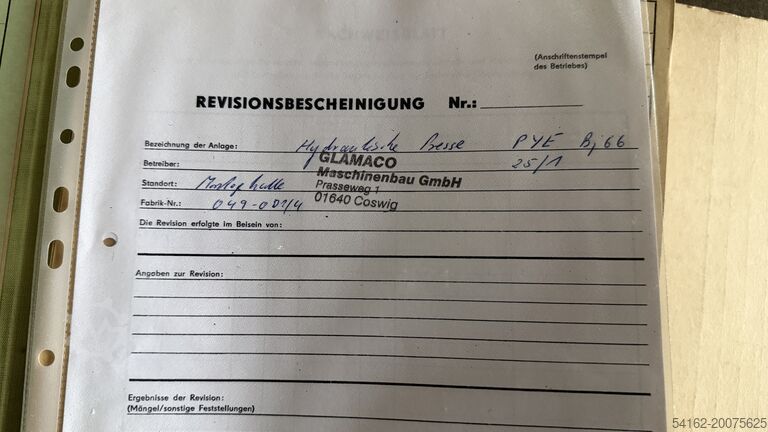 (Anschriftenstempel
des Betriebes)
REVISIONSBESCHEINIGUNG Nr.:
Bezeichnung der Anlage: Hydraulische Presse PYE Bj 66
Betreiber: 25/1
GLAMACO
Maschinenbau GmbH
Prasseweg 1
01640 Coswig
Standort: Montagehalle
Fabrik-Nr.: 049-001/4
Die Revision erfolgte im Beisein von:
Angaben zur Revision:
Ergebnisse der Revision:
(Mängel/sonstige Feststellungen)
54162-20075625